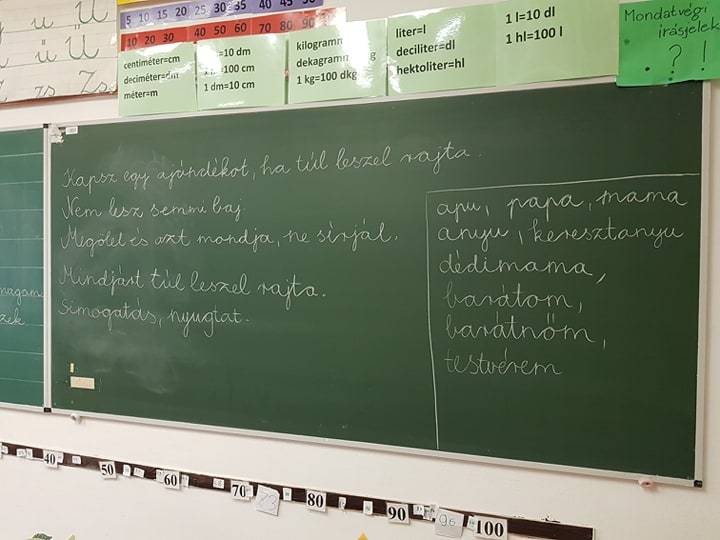 u u U
ü Ü
z Zs
5 10 15 20 25 30 35 40 45 50
10 20 30 40 50 60 70 80 90 100
centiméter=cm
deciméter=dm
méter=m
=10 dm
=100 cm
1 dm=10 cm
kilogramm
dekagramm
1 kg=100 dkg
liter=l
deciliter=dl
hektoliter=hl
1 l=10 dl
1 hl=100 l
Mondatvégi
írásjelek
. ? !
Kapsz egy ajándékot, ha túl leszel rajta.
Nem lesz semmi baj.
Megölel és azt mondja, ne sírjál.
Mindjárt túl leszel rajta.
Simogatás, nyugtat.
apu, papa, mama
anyu, keresztanyu
dédimama,
barátom,
barátnőm,
testvérem
magam
zek
40 50 60 70 73 80 90 96 100